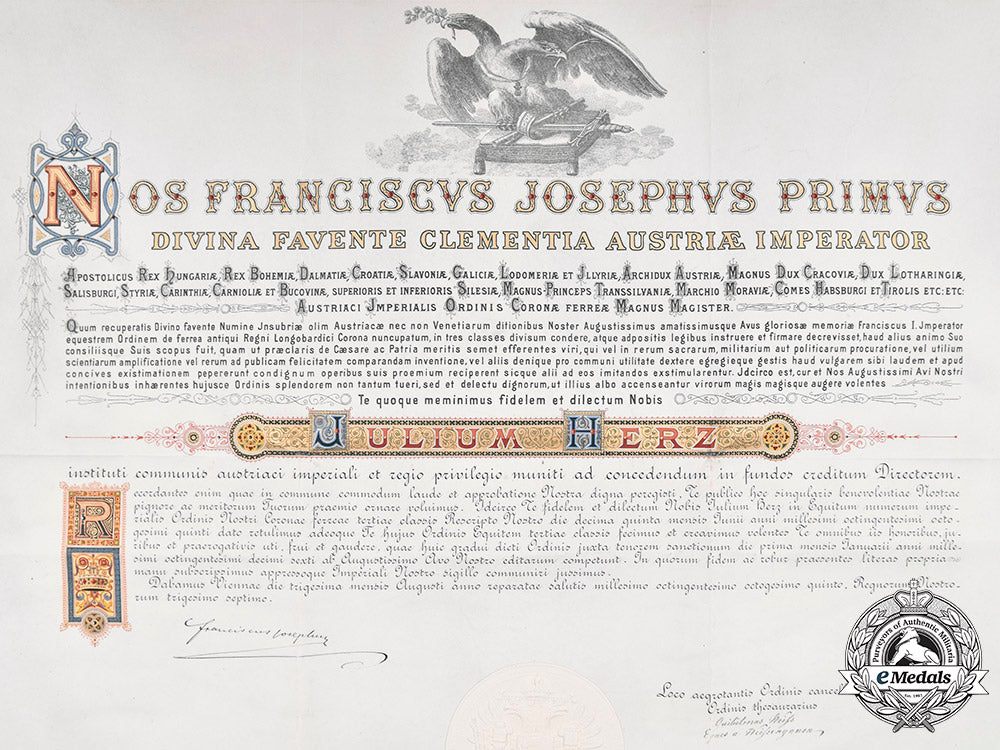 NOS FRANCISCVS JOSEPHVS PRIMVS
DIVINA FAVENTE CLEMENTIA AUSTRIÆ IMPERATOR
Apostolicus Rex Hungariæ, Rex Bohemiæ, Dalmatiæ, Croatiæ, Slavoniæ, Galiciæ, Lodomeriæ et Jllyriæ, Archidux Austriæ, Magnus Dux Cracoviæ, Dux Lotharingiæ,
Salisburgi, Styriæ, Carinthiæ, Carnioliæ et Bucovinæ, superioris et inferioris Silesiæ, Magnus-Princeps Transsilvaniæ, Marchio Moraviæ, Comes Habsburgi et Tirolis etc: etc:
Austriaci Jmperialis Ordinis Coronæ ferreæ Magnus Magister.
Quum recuperatis Divino favente Numine Jnsubriæ olim Austriacæ nec non Venetiarum ditionibus Noster Augustissimus amatissimusque Avus gloriosæ memoriæ Franciscus I. Jmperator
equestrem Ordinem de ferrea antiqui Regni Longobardici Corona nuncupatum, in tres classes divisum condere, atque adpositis legibus instruere et firmare decrevisset, haud alius animo Suo
consiliisque Suis scopus fuit, quam ut præclaris de Cæsare ac Patria meritis semet efferentes viri, qui vel in rerum sacrarum, militarium aut politicarum procuratione, vel utilium
scientiarum amplificatione vel rerum ad publicam felicitatem comparandam inventione, vel aliis denique pro communi utilitate dextere egregieque gestis haud vulgarem sibi laudem et apud
concives existimationem pepererunt condignum operibus suis proemium reciperent sicque alii ad eos imitandos exstimularentur. Jdcirco est, cur et Nos Augustissimi Avi Nostri
intentionibus inhærentes hujusce Ordinis splendorem non tantum tueri, sed et delectu dignorum, ut illius albo accenseantur virorum magis magisque augere volentes
Te quoque meminimus fidelem et dilectum Nobis
JULIUM HERZ
instituti communis austriaci imperiali et regio privilegio muniti ad concedendum in fundos creditum Directorem.
Recordantes enim quae in commune commodum laude et approbatione Nostra digna peregisti, Te publico hoc singularis benevolentiae Nostrae
pignore ac meritorum Tuorum praemio ornare voluimus. Idcirco Te fidelem et dilectum Nobis Iulium Herz in Equitum numerum impe-
rialis Ordinis Nostri Coronae ferreae tertiae classis Rescripto Nostro die decima quinta mensis Iunii anni millesimi octingentesimi octo-
gesimi quinti dato retulimus adeoque Te hujus Ordinis Equitem tertiae classis fecimus et creavimus volentes Te omnibus iis honoribus, ju-
ribus et praerogativis uti, frui et gaudere, quae huic gradui dicti Ordinis juxta tenorem sanctionum die prima mensis Ianuarii anni mille-
simi octingentesimi decimi sexti ab Augustissimo Avo Nostro editarum competunt. In quorum fidem ac robur praesentes literas propria
manu subscripsimus appressoque Imperiali Nostro sigillo communiri jussimus.
Dabamus Viennae die trigesima mensis Augusti anno reparatae salutis millesimo octingentesimo octogesimo quinto, Regnorum Nostro-
rum trigesimo septimo.
Franciscus Josephus
Loco aegrotantis Ordinis cancel
Ordinis thesaurarius
Purveyors of Authentic Militaria
eMedals
Est. 1967